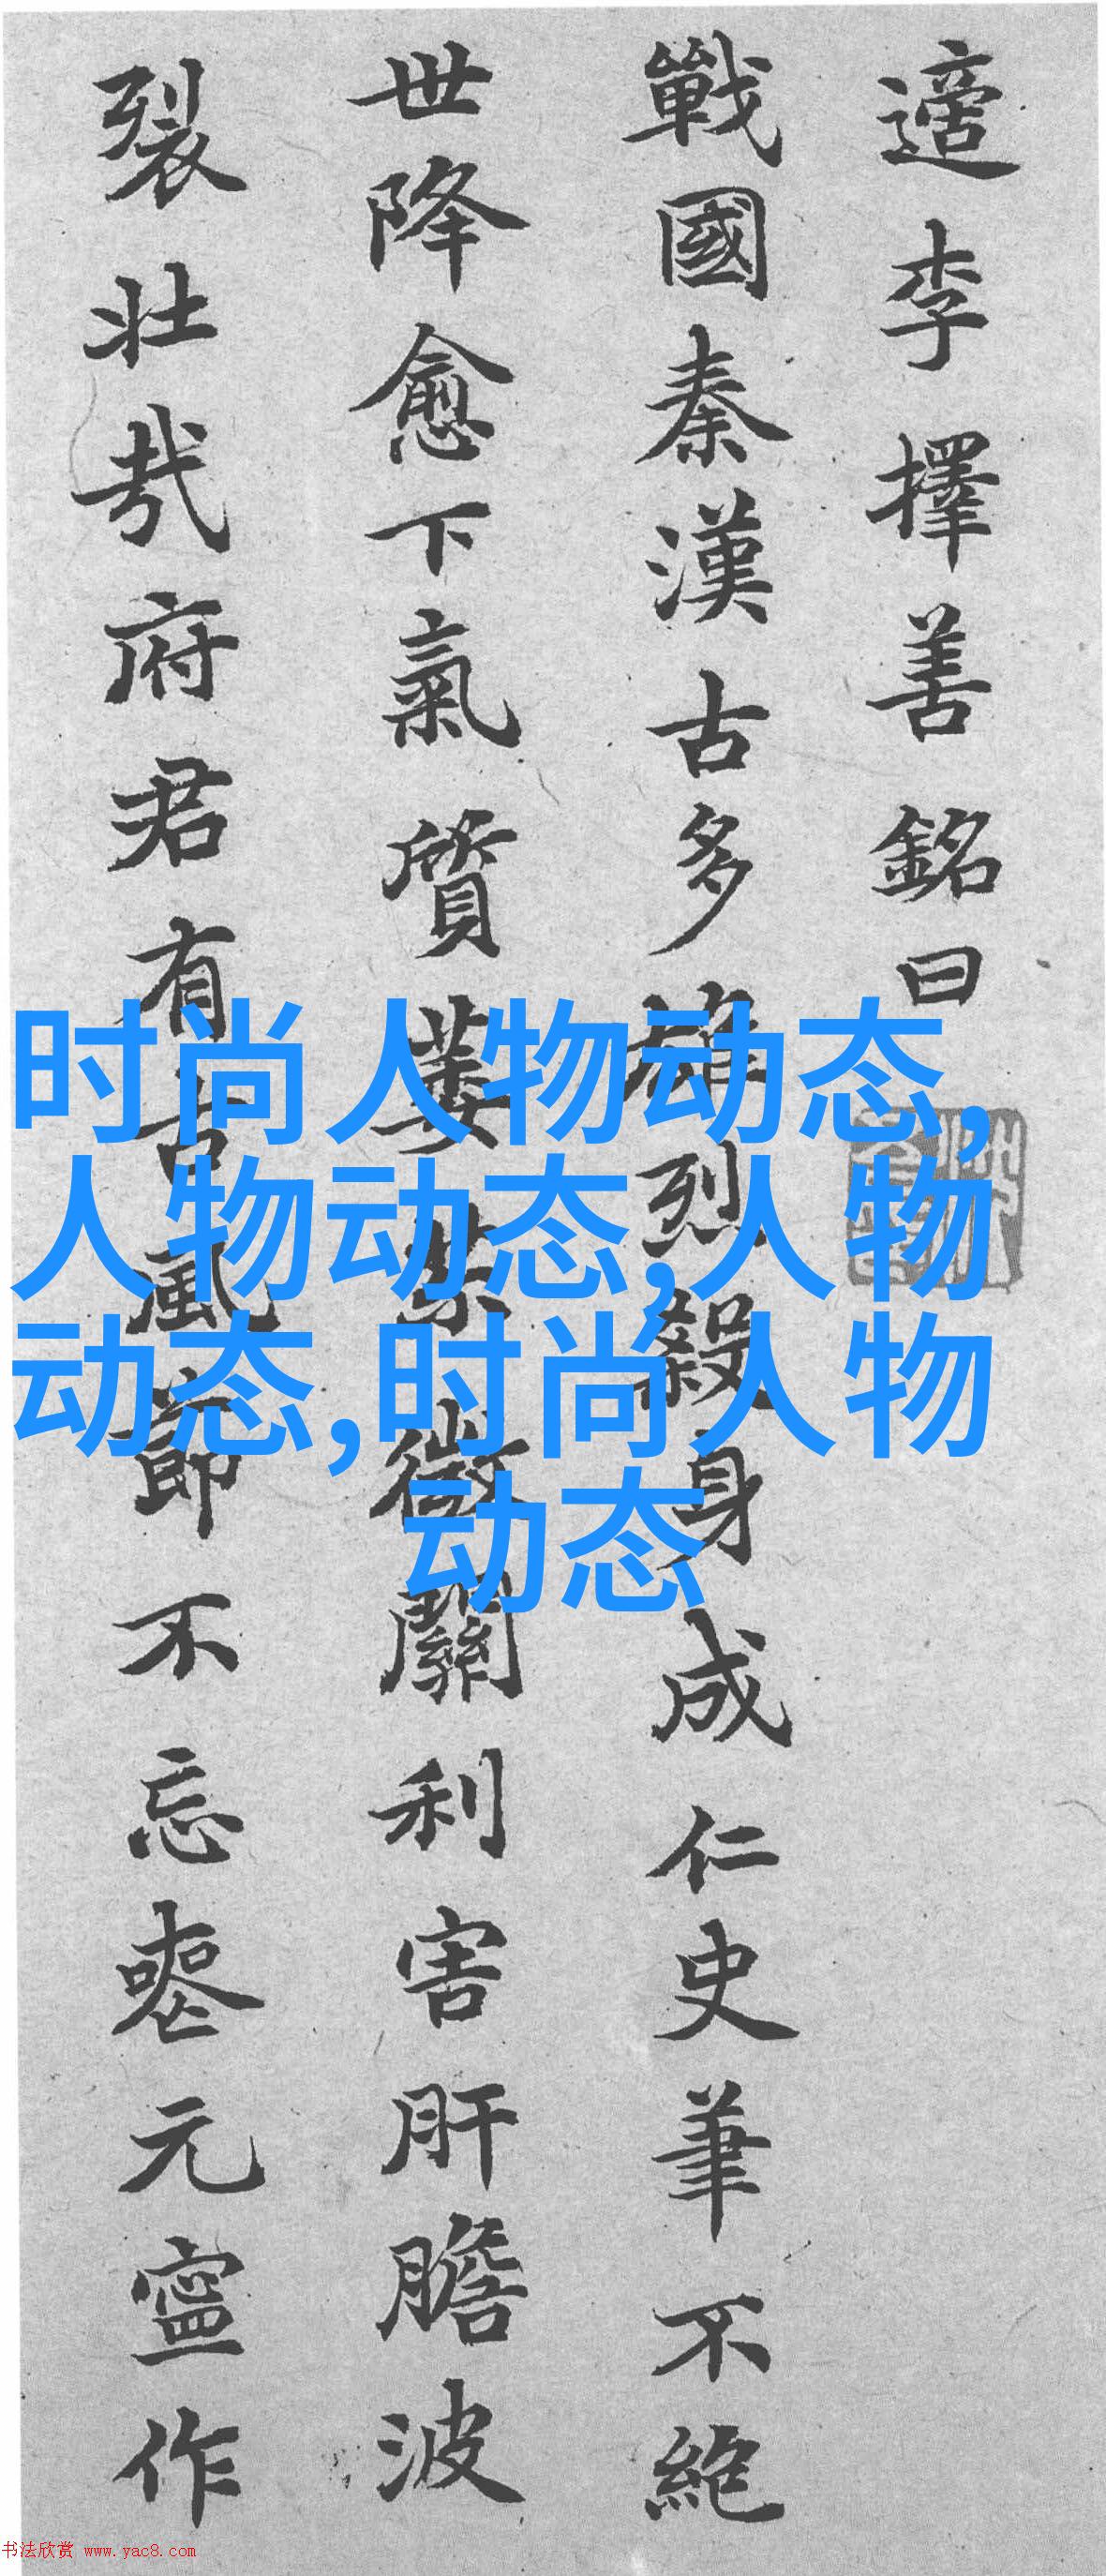 適李擇善銘曰
戰國秦漢古多雄烈殺身成仁史筆不絶
世降愈下氣質萎茶微關利害肝膽波
裂壯哉府君有古風節不忘喪元寧作
时尚人物动态,
人物动态,人物
动态,时尚人物
动态
书法欣赏 www.yac8.com